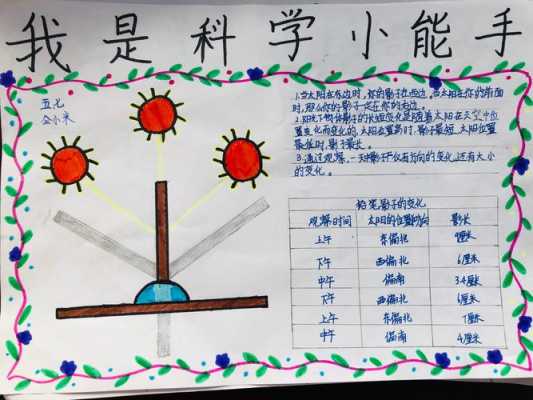 我是科学小能手
五七
金小米
1.当太阳在东边时,你的影子在西边,当太阳在你的前面
时,那么你的影子一定在你的后边。
2.阳光下物体影子的长短变化是随着太阳在天空中位
置变化而变化的,太阳位置高时,影子最短,太阳位置
最低时,影子最长。
3.通过观察,一天中影子不仅有方向的变化,还有大小
的变化。
铅笔影子的变化
观察时间 太阳的位置方向 影长
上午 东偏北 9厘米
下午 西偏北 6厘米
中午 偏南 3.4厘米
下午 西偏北 6厘米
上午 东偏北 7厘米
中午 偏南 4厘米